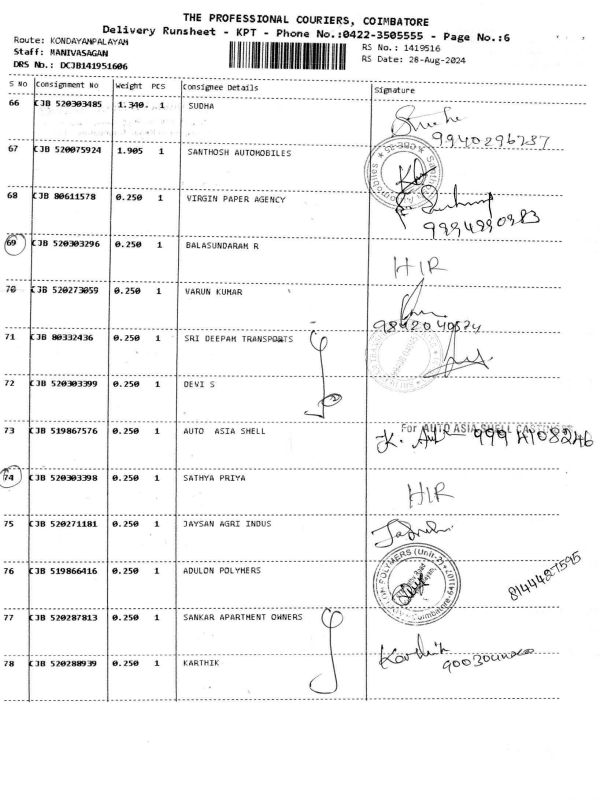 THE PROFESSIONAL COURIERS, COIMBATORE
Delivery Runsheet - KPT - Phone No.:0422-3505555 - Page No.:6
Route: KONDAYAMPALAYAM
RS No.: 1419516
Staff: MANIVASAGAN
RS Date: 28-Aug-2024
DRS No.: DCJB141951606
S No Consignment No Weight PCS Consignee Details Signature
66 CJB 520303485 1.340 1 SUDHA
9940296737
67 CJB 520075924 1.905 1 SANTHOSH AUTOMOBILES
68 CJB 80611578 0.250 1 VIRGIN PAPER AGENCY
9994990983
69 CJB 520303296 0.250 1 BALASUNDARAM R
HIR
70 CJB 520273059 0.250 1 VARUN KUMAR
71 CJB 80332436 0.250 1 SRI DEEPAM TRANSPORTS
72 CJB 520303399 0.250 1 DEVI S
73 CJB 519867576 0.250 1 AUTO ASIA SHELL
For AUTO ASIA SHELL CASTINGS
9994108246
74 CJB 520303398 0.250 1 SATHYA PRIYA
HIR
75 CJB 520271181 0.250 1 JAYSAN AGRI INDUS
76 CJB 519866416 0.250 1 ADULON POLYMERS
POLYMERS (Unit-2)
8144487595
77 CJB 520287813 0.250 1 SANKAR APARTMENT OWNERS
78 CJB 520288939 0.250 1 KARTHIK
Karthik